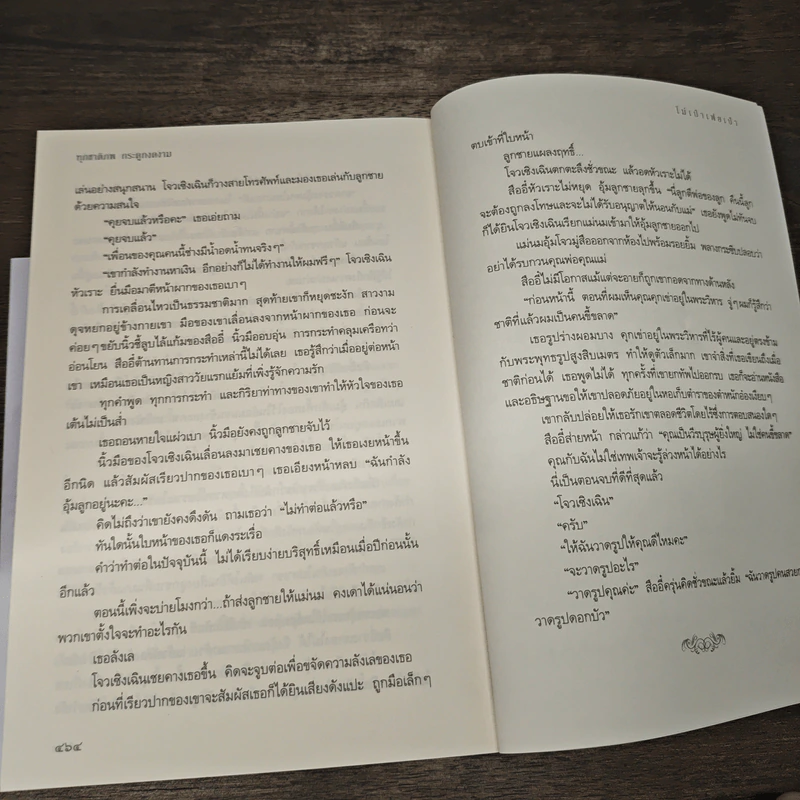 ทุกชาติภพ กระดูกงดงาม
เล่นอย่างสนุกสนาน โจวเซิงเฉินก็วางสายโทรศัพท์และมองเธอเล่นกับลูกชาย
ด้วยความสนใจ
“คุยจบแล้วหรือคะ” เธอเอ่ยถาม
“คุยจบแล้ว”
“เพื่อนของคุณคนนี้ช่างมีน้ำอดน้ำทนจริงๆ”
“เขากำลังทำงานหาเงิน อีกอย่างก็ไม่ได้ทำงานให้ผมฟรีๆ” โจวเซิงเฉิน
หัวเราะ ยื่นมือมาตีหน้าผากของเธอเบาๆ
การเคลื่อนไหวเป็นธรรมชาติมาก สุดท้ายเขาก็หยุดชะงัก สาวงาม
ดุจหยกอยู่ข้างกายเขา มือของเขาเลื่อนลงจากหน้าผากของเธอ ก่อนจะ
ค่อยๆ ขยับนิ้วชี้ลูบไล้แก้มของสืออี๋ นิ้วมืออบอุ่น การกระทำคลุมเครือทว่า
อ่อนโยน สืออี๋ต้านทานการกระทำเหล่านี้ไม่ได้เลย เธอรู้สึกว่าเมื่ออยู่ต่อหน้า
เขา เหมือนเธอเป็นหญิงสาววัยแรกแย้มที่เพิ่งรู้จักความรัก
ทุกคำพูด ทุกการกระทำ และกิริยาท่าทางของเขาทำให้หัวใจของเธอ
เต้นไม่เป็นส่ำ
เธอถอนหายใจแผ่วเบา นิ้วมือยังคงถูกลูกชายจับไว้
นิ้วมือของโจวเซิงเฉินเลื่อนลงมาเชยคางของเธอ ให้เธอเงยหน้าขึ้น
อีกนิด แล้วสัมผัสเรียวปากของเธอเบาๆ เธอเอียงหน้าหลบ “ฉันกำลัง
อุ้มลูกอยู่นะคะ...”
คิดไม่ถึงว่าเขายังคงดึงดัน ถามเธอว่า “ไม่ทำต่อแล้วหรือ”
ทันใดนั้นใบหน้าของเธอก็แดงระเรื่อ
คำว่าทำต่อในปัจจุบันนี้ ไม่ได้เรียบง่ายบริสุทธิ์เหมือนเมื่อปีก่อนนั้น
อีกแล้ว
ตอนนี้เพิ่งจะบ่ายโมงกว่า...ถ้าส่งลูกชายให้แม่นม คงเดาได้แน่นอนว่า
พวกเขาตั้งใจจะทำอะไรกัน
เธอลังเล
โจวเซิงเฉินเชยคางเธอขึ้น คิดจะจูบต่อเพื่อขจัดความลังเลของเธอ
ก่อนที่เรียวปากของเขาจะสัมผัสเธอก็ได้ยินเสียงดังแปะ ถูกมือเล็กๆ
๔๖๔
ไม่เช้าเฟยเช้า
ตบเข้าที่ใบหน้า
ลูกชายแผลงฤทธิ์...
โจวเซิงเฉินตกตะลึงชั่วขณะ แล้วอดหัวเราะไม่ได้
สืออี๋หัวเราะไม่หยุด อุ้มลูกชายลุกขึ้น “นี่ลูกตีพ่อของลูก คืนนี้ลูก
จะต้องถูกลงโทษและจะไม่ได้รับอนุญาตให้นอนกับแม่” เธอยังพูดไม่ทันจบ
ก็ได้ยินโจวเซิงเฉินเรียกแม่นมเข้ามาให้อุ้มลูกชายออกไป
แม่นมอุ้มโจวมู่สือออกจากห้องไปพร้อมรอยยิ้ม พลางกระซิบปลอบว่า
อย่าได้รบกวนคุณพ่อคุณแม่
สืออี๋ไม่มีโอกาสแม้แต่จะอายก็ถูกเขากอดจากทางด้านหลัง
“ก่อนหน้านี้ ตอนที่ผมเห็นคุณคุกเข่าอยู่ในพระวิหาร จู่ๆ ผมก็รู้สึกว่า
ชาติที่แล้วผมเป็นคนขี้ขลาด”
เธอรูปร่างผอมบาง คุกเข่าอยู่ในพระวิหารที่ไร้ผู้คนและอยู่ตรงข้าม
กับพระพุทธรูปสูงสิบเมตร ทำให้ดูตัวเล็กมาก เขาจำสิ่งที่เธอเขียนถึงเมื่อ
ชาติก่อนได้ เธอพูดไม่ได้ ทุกครั้งที่เขายกทัพไปออกรบ เธอก็จะอ่านหนังสือ
และอธิษฐานขอให้เขาปลอดภัยอยู่ในหอเก็บตำราของตำหนักอ๋องเงียบๆ
เขากลับปล่อยให้เธอรักเขาตลอดชีวิตโดยไร้ซึ่งการตอบสนองใดๆ
สืออี๋ส่ายหน้า กล่าวแก้ว่า “คุณเป็นวีรบุรุษผู้ยิ่งใหญ่ ไม่ใช่คนขี้ขลาด”
คุณกับฉันไม่ใช่เทพเจ้าจะรู้ล่วงหน้าได้อย่างไร
นี่เป็นตอนจบที่ดีที่สุดแล้ว
“โจวเซิงเฉิน”
“ครับ”
“ให้ฉันวาดรูปให้คุณดีไหมคะ”
“จะวาดรูปอะไร”
“วาดรูปคุณค่ะ” สืออี๋ครุ่นคิดชั่วขณะแล้วยิ้ม “ฉันวาดรูปคนสวยกว่า
วาดรูปดอกบัว”